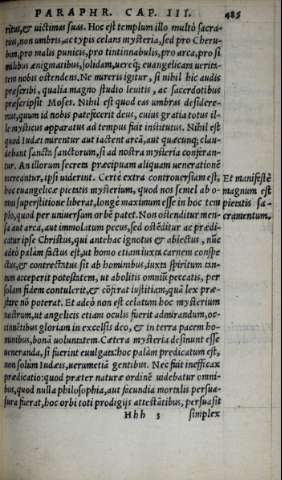 PARAPHR. CAP. III. 485
ritus, & uictimas suas. Hoc est templum illo multò sacra-
tius, non umbras ac typis celans mysteria, sed pro Cheru-
bin, pro malis punicis, pro tintinnabulis, pro arca, pro si
milibus ænigmatibus, solidam, ueréq; euangelicam uerita-
tem nobis ostendens. Ne mireris igitur, si nihil hic audis
præscribi, qualia magno studio leuitis, ac sacerdotibus
præscripsit Moses. Nihil est quod eas umbras desidere-
mus, quum id nobis patefecerit deus, cuius gratia totus il-
le mysticus apparatus ad tempus fuit institutus. Nihil est
quod Iudæi mirentur aut iactent arcā, aut quæcunq; clau-
debant sancta sanctorum, si ad nostra mysteria conferan-
tur. An illorum secreta præcipuam aliquam uenerationē
mereantur, ipsi uiderint. Certè extra controuersiam est,
Et manifestè
hoc euangelicæ pietatis mysterium, quod nos semel ab o-
magnum est
mni superstitione liberat, longè maximum esse in hoc tem
pietatis sa-
plo, quod per uniuersum orbē patet. Non ostenditur men-
cramentum.
sa aut arca, aut immolatum pecus, sed ostēditur ac prædi-
catur ipse Christus, qui antehac ignotus & abiectus, nūc
adeò palàm factus est, ut homo etiam iuxta carnem conspe
ctus, & contrectatus sit ab hominibus, iuxta spiritum tan-
tam acceperit potestatem, ut abolitis omniū peccatis, per
solam fidem contulerit, & cōfirat iustitiam, quā lex præ-
stare nō poterat. Et adeò non est celatum hoc mysterium
nostrum, ut angelicis etiam oculis fuerit admirandum, oc-
cinentibus gloriam in excelsis deo, & in terra pacem ho-
minibus, bonā uoluntatem. Cætera mysteria desinunt esse
ueneranda, si fuerint euulgata: hoc palàm prædicatum est,
non solùm Iudæis, uerumetiā gentibus. Nec fuit inefficax
prædicatio: quod præter naturæ ordinē uidebatur omni-
bus, quod nulla philosophia, aut fecundia mortalis persua-
sura fuerat, hoc orbi toti prodigijs attestātibus, persuasit
Hhh 3 simplex